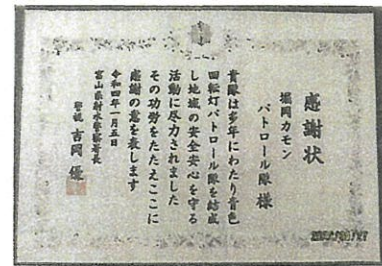 感謝状
堀岡カモン
パトロール隊 様
貴隊は多年にわたり青色
回転灯パトロール隊を結成
し地域の安全安心を守る
活動に尽力されました
その功労をたたえここに
感謝の意を表します
令和四年一月五日
富山県射水警察署長
警視 吉岡 優